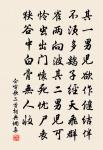 其一男兒欲作健結伴
不須多鷂子經天飛群
雀兩向波其二男兒可
憐蟲出門懷死憂尸喪
狹谷中白骨無人收